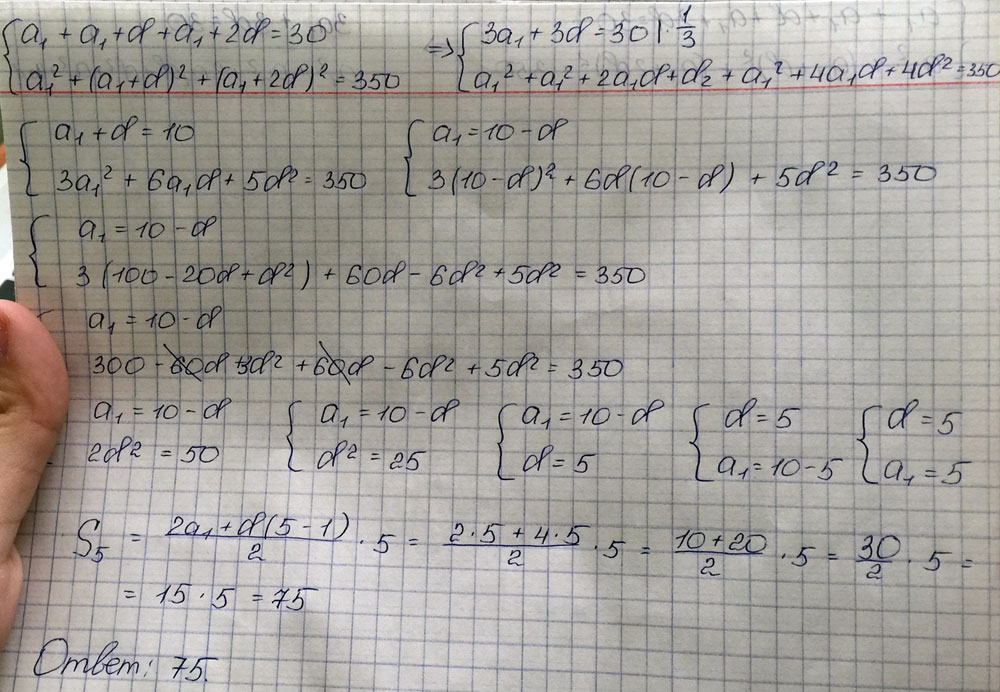 { a₁ + a₁ + d + a₁ + 2d = 30 ⇒ { 3a₁ + 3d = 30 | · 1/3
a₁² + (a₁ + d)² + (a₁ + 2d)² = 350 a₁² + a₁² + 2a₁d + d₂ + a₁² + 4a₁d + 4d² = 350
{ a₁ + d = 10 { a₁ = 10 - d
3a₁² + 6a₁d + 5d² = 350 3(10 - d)² + 6d(10 - d) + 5d² = 350
{ a₁ = 10 - d
3(100 - 20d + d²) + 60d - 6d² + 5d² = 350
a₁ = 10 - d
300 - 60d + 3d² + 60d - 6d² + 5d² = 350
a₁ = 10 - d { a₁ = 10 - d { a₁ = 10 - d { d = 5 { d = 5
2d² = 50 d² = 25 d = 5 a₁ = 10 - 5 a₁ = 5
S₅ = (2a₁ + d(5 - 1))/2 · 5 = (2 · 5 + 4 · 5)/2 · 5 = (10 + 20)/2 · 5 = 30/2 · 5 =
= 15 · 5 = 75
Ответ: 75.